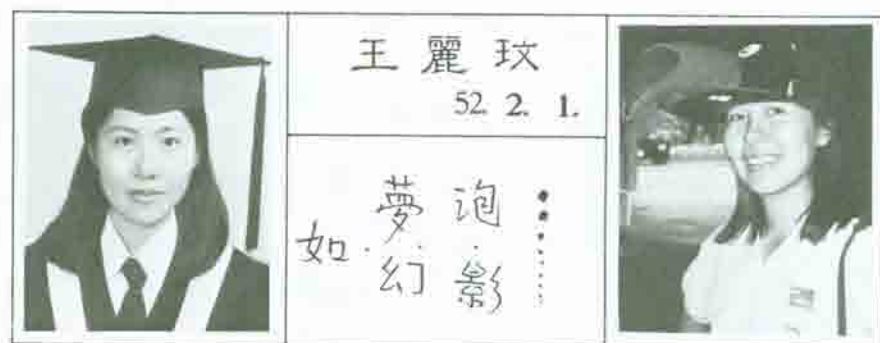 王麗玟
52. 2. 1.
如.夢.幻.泡.影